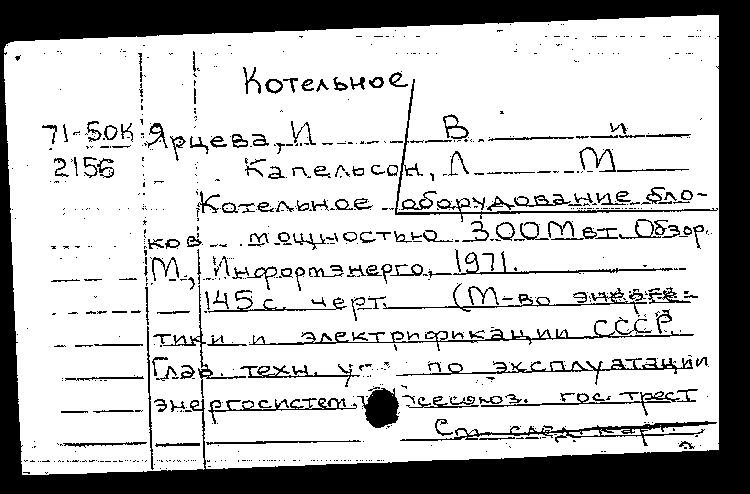 Котельное
71-50К Ярцева, И В и
2156 Капельсон, Л М
Котельное оборудование бло-
ков мощностью 300 Мвт. Обзор.
М, Информэнерго, 1971.
145 с. черт. (М-во энерге-
тики и электрификации СССР.
Глав. техн. по эксплуатации
энергосистем. гос. трест
См. след. карт.